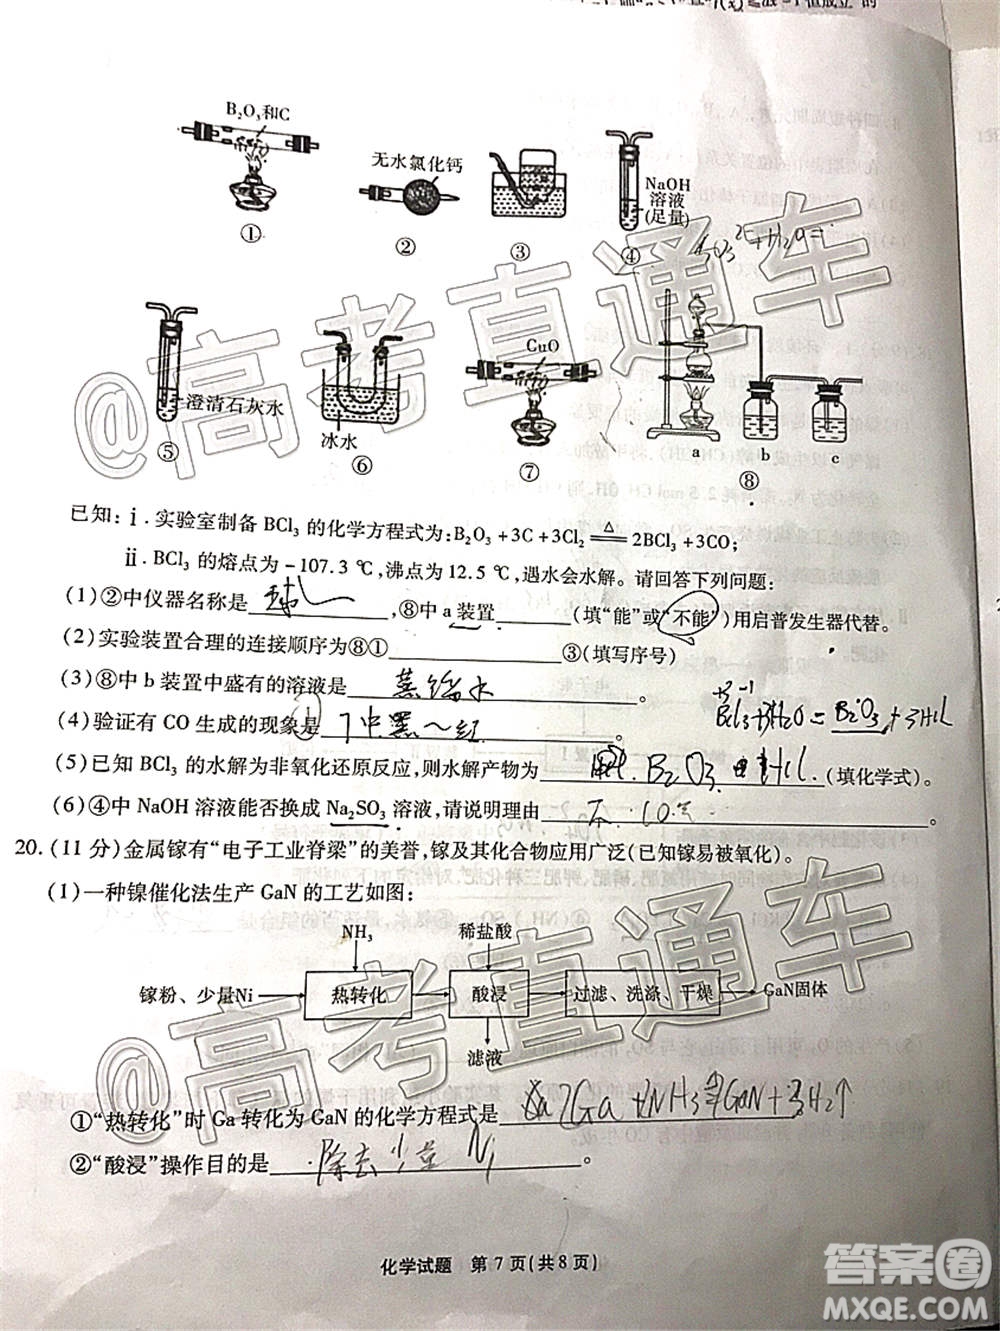 B₂O₃和C
无水氯化钙
NaOH
溶液
(足量)
① ② ③ ④
澄清石灰水
冰水
CuO
a b c
⑤ ⑥ ⑦ ⑧
已知:ⅰ.实验室制备 BCl₃ 的化学方程式为:B₂O₃+3C+3Cl₂ ══△══ 2BCl₃+3CO;
ⅱ.BCl₃ 的熔点为-107.3 ℃,沸点为 12.5 ℃,遇水会水解。请回答下列问题:
(1)②中仪器名称是________,⑧中 a 装置________(填“能”或“不能”)用启普发生器代替。
(2)实验装置合理的连接顺序为⑧①________③(填写序号)
(3)⑧中 b 装置中盛有的溶液是________。
(4)验证有 CO 生成的现象是 7中黑~红 。
(5)已知 BCl₃ 的水解为非氧化还原反应,则水解产物为 B₂O₃ HCl (填化学式)。
BCl₃+3H₂O=B₂O₃+3HCl
(6)④中 NaOH 溶液能否换成 Na₂SO₃ 溶液,请说明理由________。
20.(11 分)金属镓有“电子工业脊梁”的美誉,镓及其化合物应用广泛(已知镓易被氧化)。
(1)一种镍催化法生产 GaN 的工艺如图:
NH₃ 稀盐酸
镓粉、少量Ni 热转化 酸浸 过滤、洗涤、干燥 GaN固体
滤液
①“热转化”时 Ga 转化为 GaN 的化学方程式是 2Ga+NH₃⇌GaN+3H₂↑
②“酸浸”操作目的是 除去少量Ni 。
化学试题 第 7 页(共 8 页)
@高考直通车
@高考直通车
答案圈
MXQE.COM